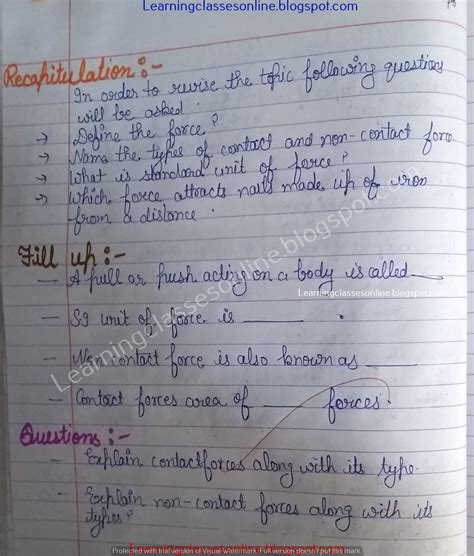 Learningclassesonline.blogspot.com
Recapitulation :-
In order to revise the topic following questions
will be asked.
→ Define the force?
→ Name the types of contact and non-contact force.
→ What is standard unit of force?
→ Which force attracts nails made up of iron
from a distance.
Fill up :-
— A pull or push acting on a body is called
Learningclassesonline.blogspot.com
— SI unit of force is
— Non contact force is also known as
— Contact forces area of forces.
Learningclassesonline.blogspot.com
Questions :-
— Explain contact forces along with its type.
— Explain non-contact forces along with its
types?
Protected with trial version of Visual Watermark. Full version doesn't put this mark.